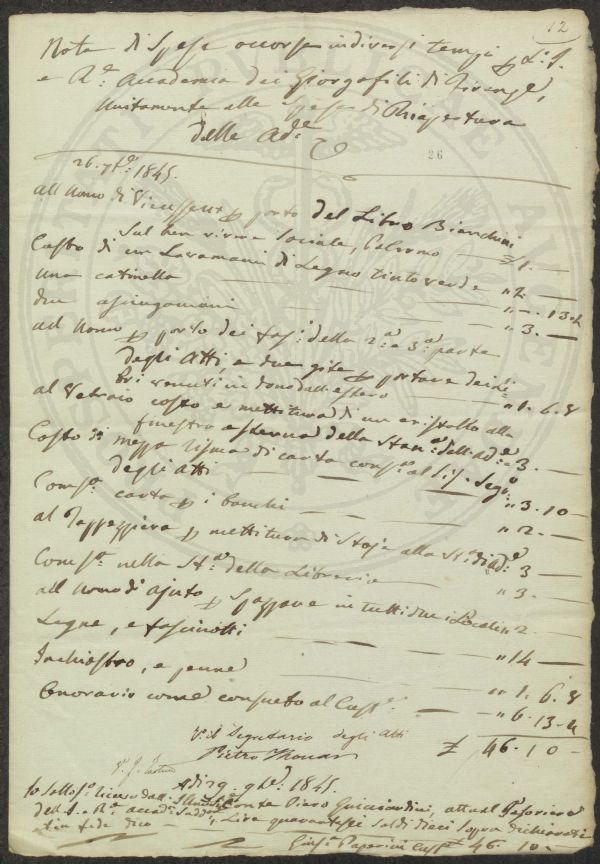 12
Nota di Spese occorse in diversi tempi p L'I.
e R.e Accademia dei Giorgofili di Firenze,
unitamente alle Spese di Riapertura
delle Ad.e
26
26. 9bre 1845.
all Uomo di Vieusseux p porto del Libro Bianchini
Sul ben vivere Sociale, Palermo £ 1. —
Costo di un Lavamani di Legno tinto verde " 2. —
una catinella " —. 13. 4
due asciugamani " 3. —
ad Uomo p porto dei fasi. della 2.a e 3.a parte
degli Atti, e due gite p portare dei Li-
bri venuti in dono dall'estero " 1. 6. 8
al Vetraio costo e mettitura di un cristallo alla
finestra esterna della Stan.a dell'Ad.e " 3. —
Costo di mezza risma di carta cons.a al Sig. Segr.o
degli Atti " 3. 10 —
Comp.a carta p i banchi " 2 —
al Tappezziere p mettitura di Stoje alla St.a di Ad.e 3 —
Comp.a nella St.a della Libreria " 3. —
all Uomo di ajuto p Spazzare in tutti due i Locali " 2 —
Legne, e fascinotti " 14 —
Inchiostro, e penne " 1. 6. 8
Onorario come consueto al Cust.e " 6. 13. 4
£ 46. 10 —
V.o il Segretario degli Atti
Pietro Thouar
Adi 29. 9bre 1845.
Io Sotto.o ricevo dall' Conte Piero Guicciardini, attual Tesoriere
dell'I. e R.e Accad.a Sudd.a Lire quarantasei soldi dieci Sopra dichiarati
in fede dico
Gius.e Paperini Cust.e 46. 10 —